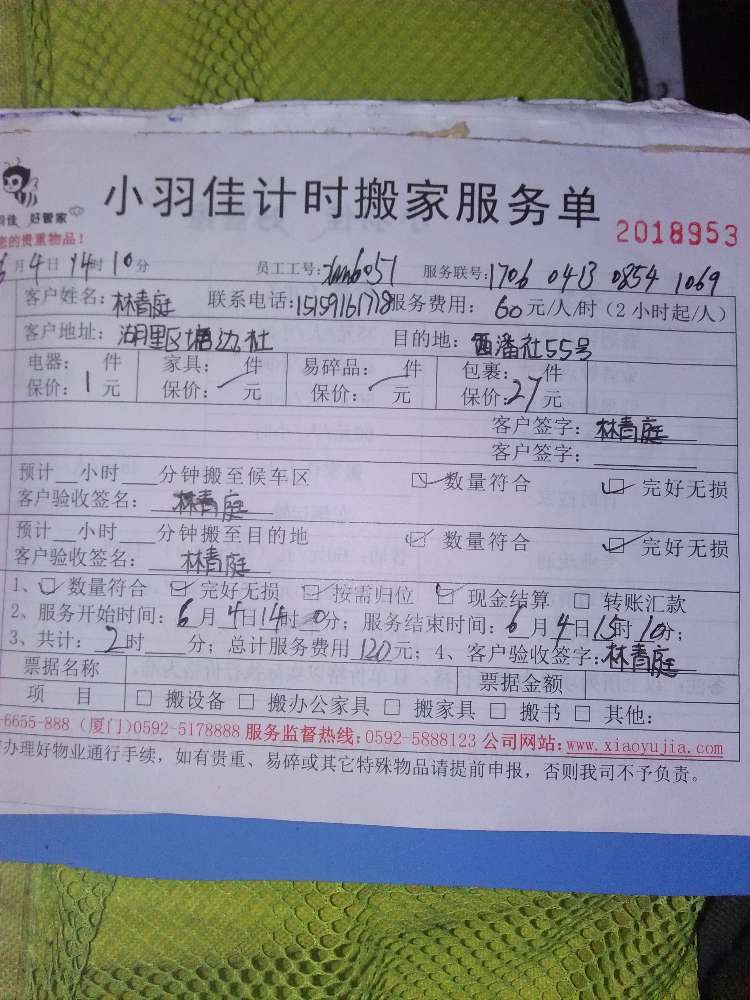 小羽佳计时搬家服务单
羽佳 好管家
您的贵重物品!
2018953
6月4日14时10分 员工工号: 服务联号:1706 0413 0854 1069
客户姓名:林青庭 联系电话:15159161778服务费用:60元/人/时(2小时起/人)
客户地址:湖里区塘边社 目的地:西潘社55号
电器: 件 家具: 件 易碎品: 件 包裹: 件
保价:1元 保价: 元 保价: 元 保价:27元
客户签字:林青庭
客户签字:
预计__小时___分钟搬至候车区 ☑数量符合 ☑完好无损
客户验收签名:林青庭
预计__小时___分钟搬至目的地 ☑数量符合 ☑完好无损
客户验收签名:林青庭
1、☑数量符合 ☑完好无损 ☑按需归位 ☑现金结算 □转账汇款
2、服务开始时间:6月4日14时0分;服务结束时间:6月4日15时10分;
3、共计:2时___分;总计服务费用120元;4、客户验收签字:林青庭
票据名称 票据金额
项 目 □搬设备 □搬办公家具 □搬家具 □搬书 □其他:
-6655-888(厦门)0592-5178888 服务监督热线:0592-5888123 公司网站:www.xiaoyujia.com
办理好物业通行手续,如有贵重、易碎或其它特殊物品请提前申报,否则我司不予负责。